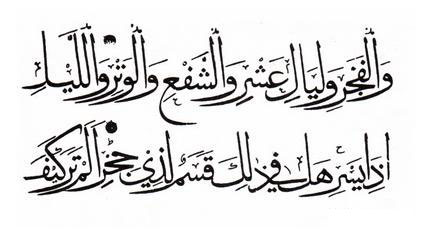 وَالْفَجْرِ وَلَيَالٍ عَشْرٍ وَالشَّفْعِ وَالْوَتْرِ وَاللَّيْلِ
إِذَا يَسْرِ هَلْ فِي ذَلِكَ قَسَمٌ لِذِي حِجْرٍ أَلَمْ تَرَ كَيْفَ